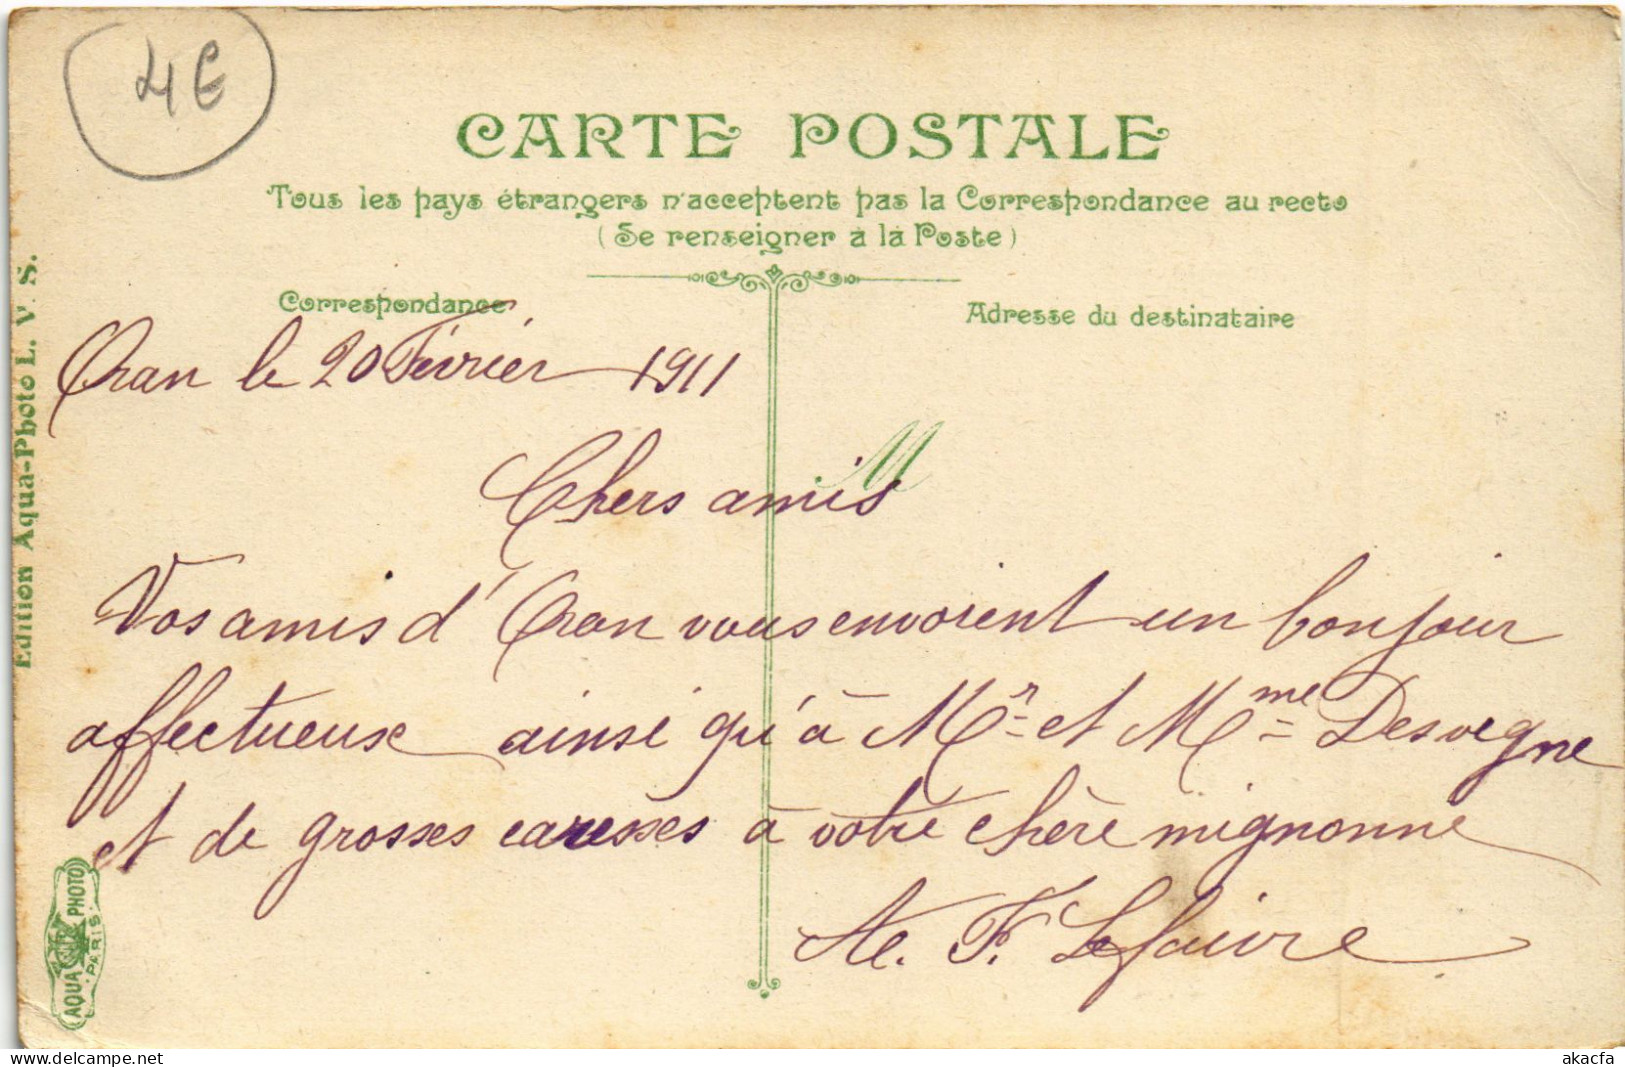 4€
CARTE POSTALE
Tous les pays étrangers n'acceptent pas la Correspondance au recto
(Se renseigner à la Poste)
Correspondance
Adresse du destinataire
Edition Aqua-Photo L. V. S.
Oran le 20 Février 1911
M
Chers amis
Vos amis d'Oran vous envoient un bonjour
affectueux ainsi qu'à Mr et Mme Desvegne
et de grosses caresses à votre chère mignonne
F. Lefaivre
AQUA PHOTO
PARIS
delcampe.net
akacfa